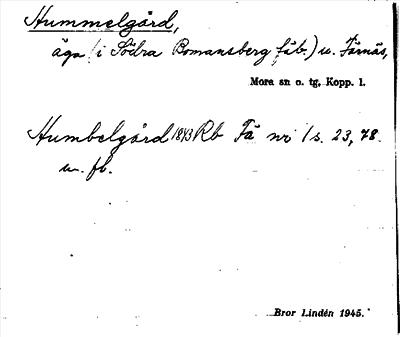 Hummelgård,
äga (i Södra Bomansberg fäb.) u. Färnäs,
Mora sn o. tg, Kopp. l.
Humbelgård 1843 Rb Fä nr 1 s. 23, 78.
m. fl.
Bror Lindén 1945.